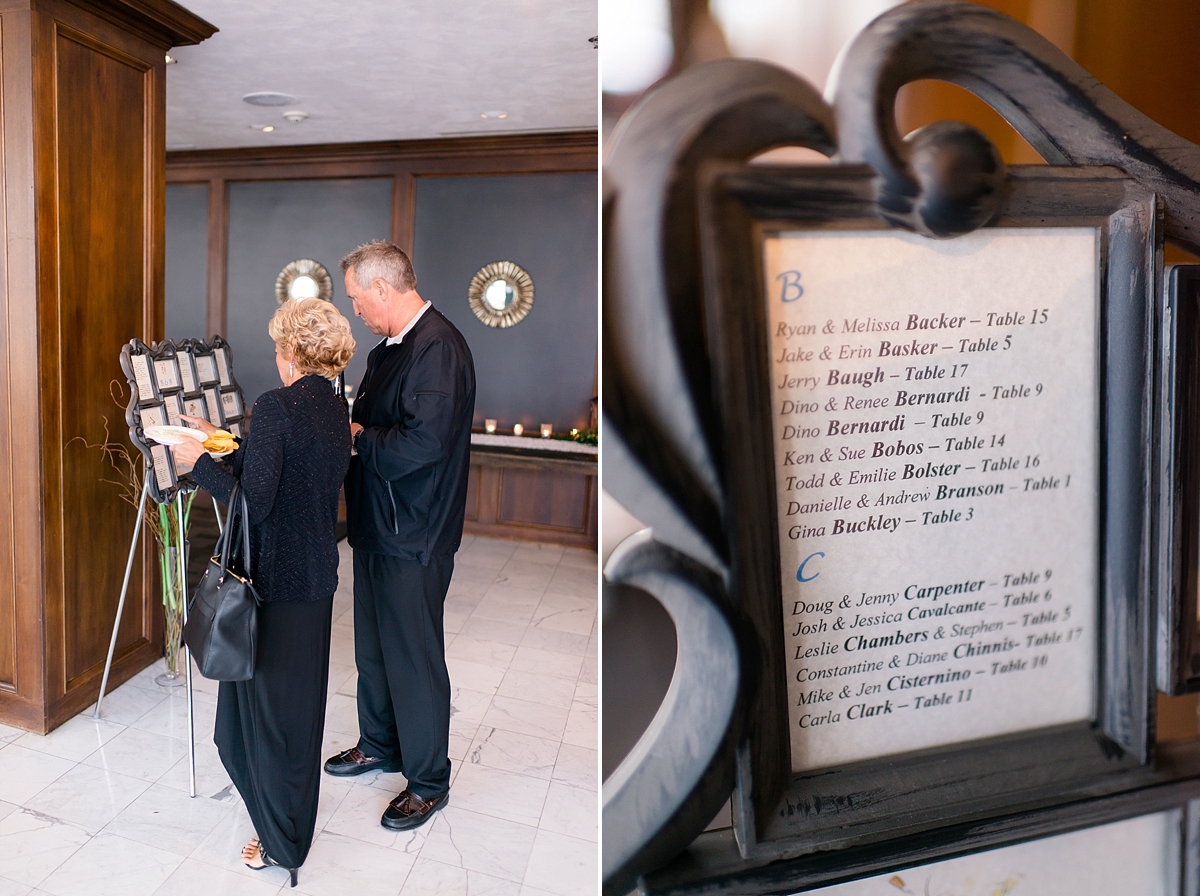 B
Ryan & Melissa Backer – Table 15
Jake & Erin Basker – Table 5
Jerry Baugh – Table 17
Dino & Renee Bernardi - Table 9
Dino Bernardi – Table 9
Ken & Sue Bobos – Table 14
Todd & Emilie Bolster – Table 16
Danielle & Andrew Branson – Table 1
Gina Buckley – Table 3
C
Doug & Jenny Carpenter – Table 9
Josh & Jessica Cavalcante – Table 6
Leslie Chambers & Stephen – Table 5
Constantine & Diane Chinnis- Table 17
Mike & Jen Cisternino – Table 10
Carla Clark – Table 11